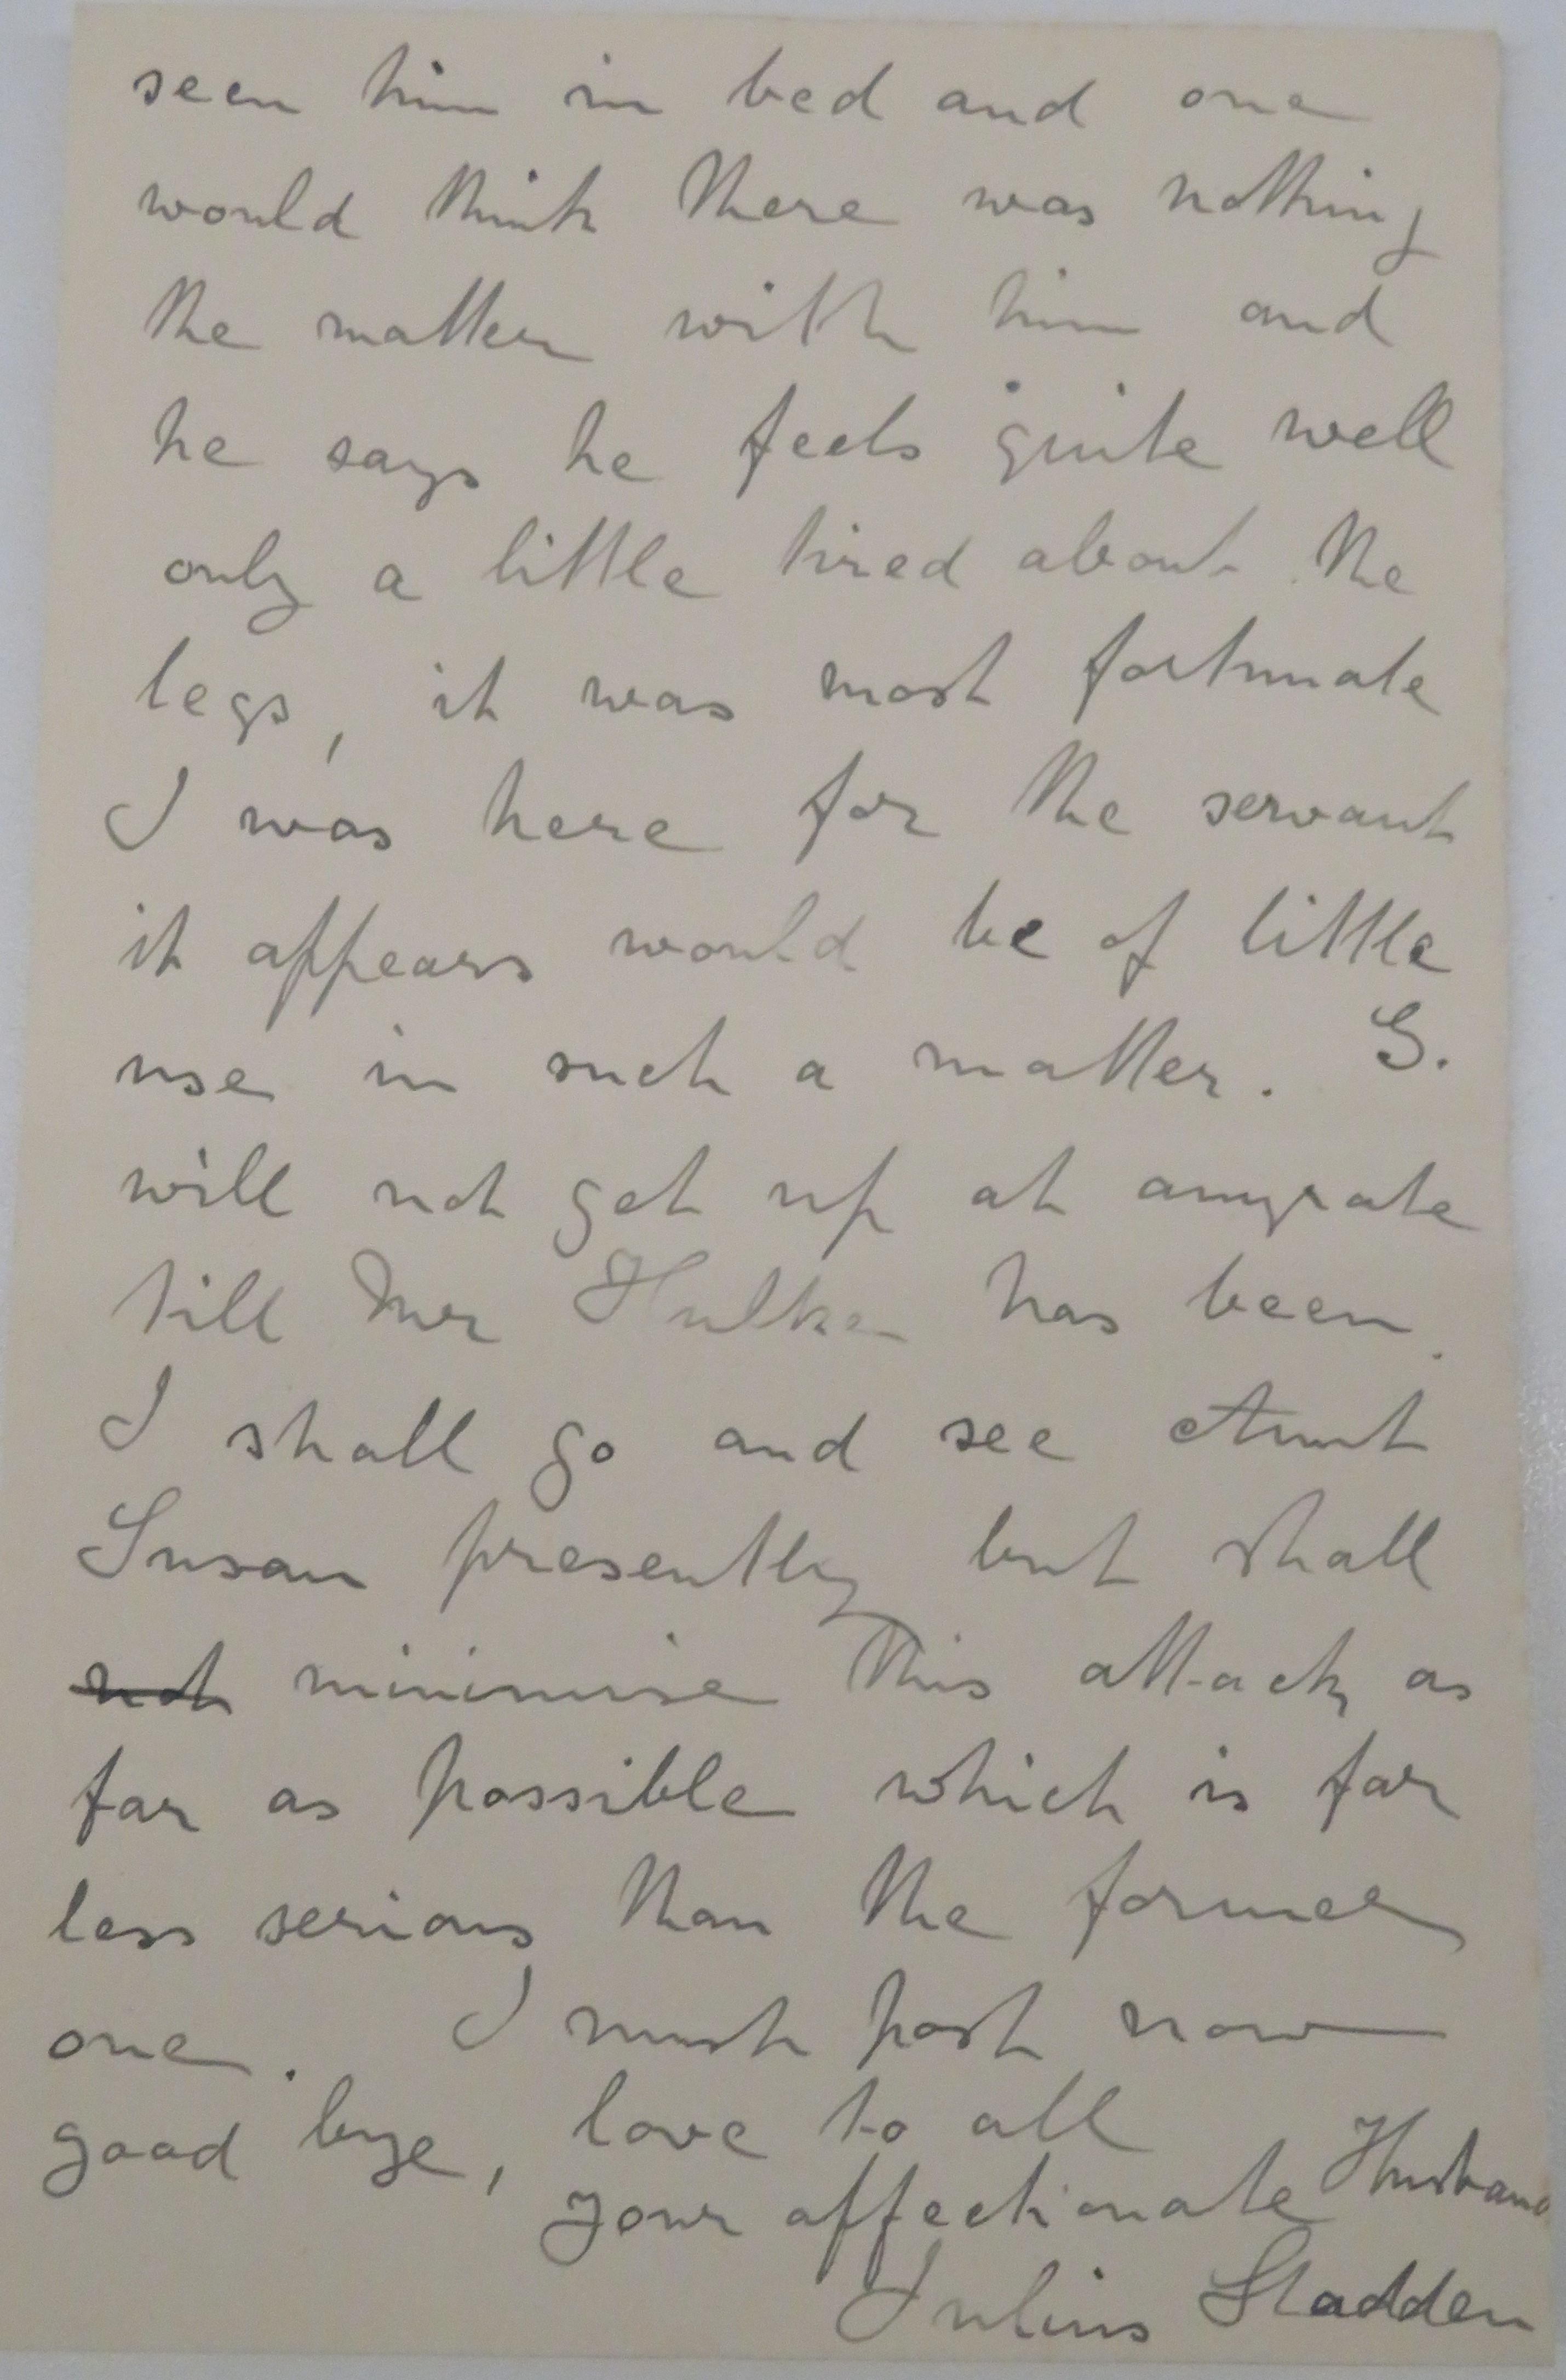 seen him in bed and one
would think there was nothing
the matter with him and
he says he feels quite well
only a little tired about the
legs, it was most fortunate
I was here for the servant
it appears would be of little
use in such a matter. G.
will not get up at anyrate
till Mr Hulke has been.
I shall go and see Aunt
Susan presently but shall
not minimise this attack as
far as possible which is far
less serious than the former
one. I must post now
good bye, love to all
your affectionate Husband
Julius Sladden